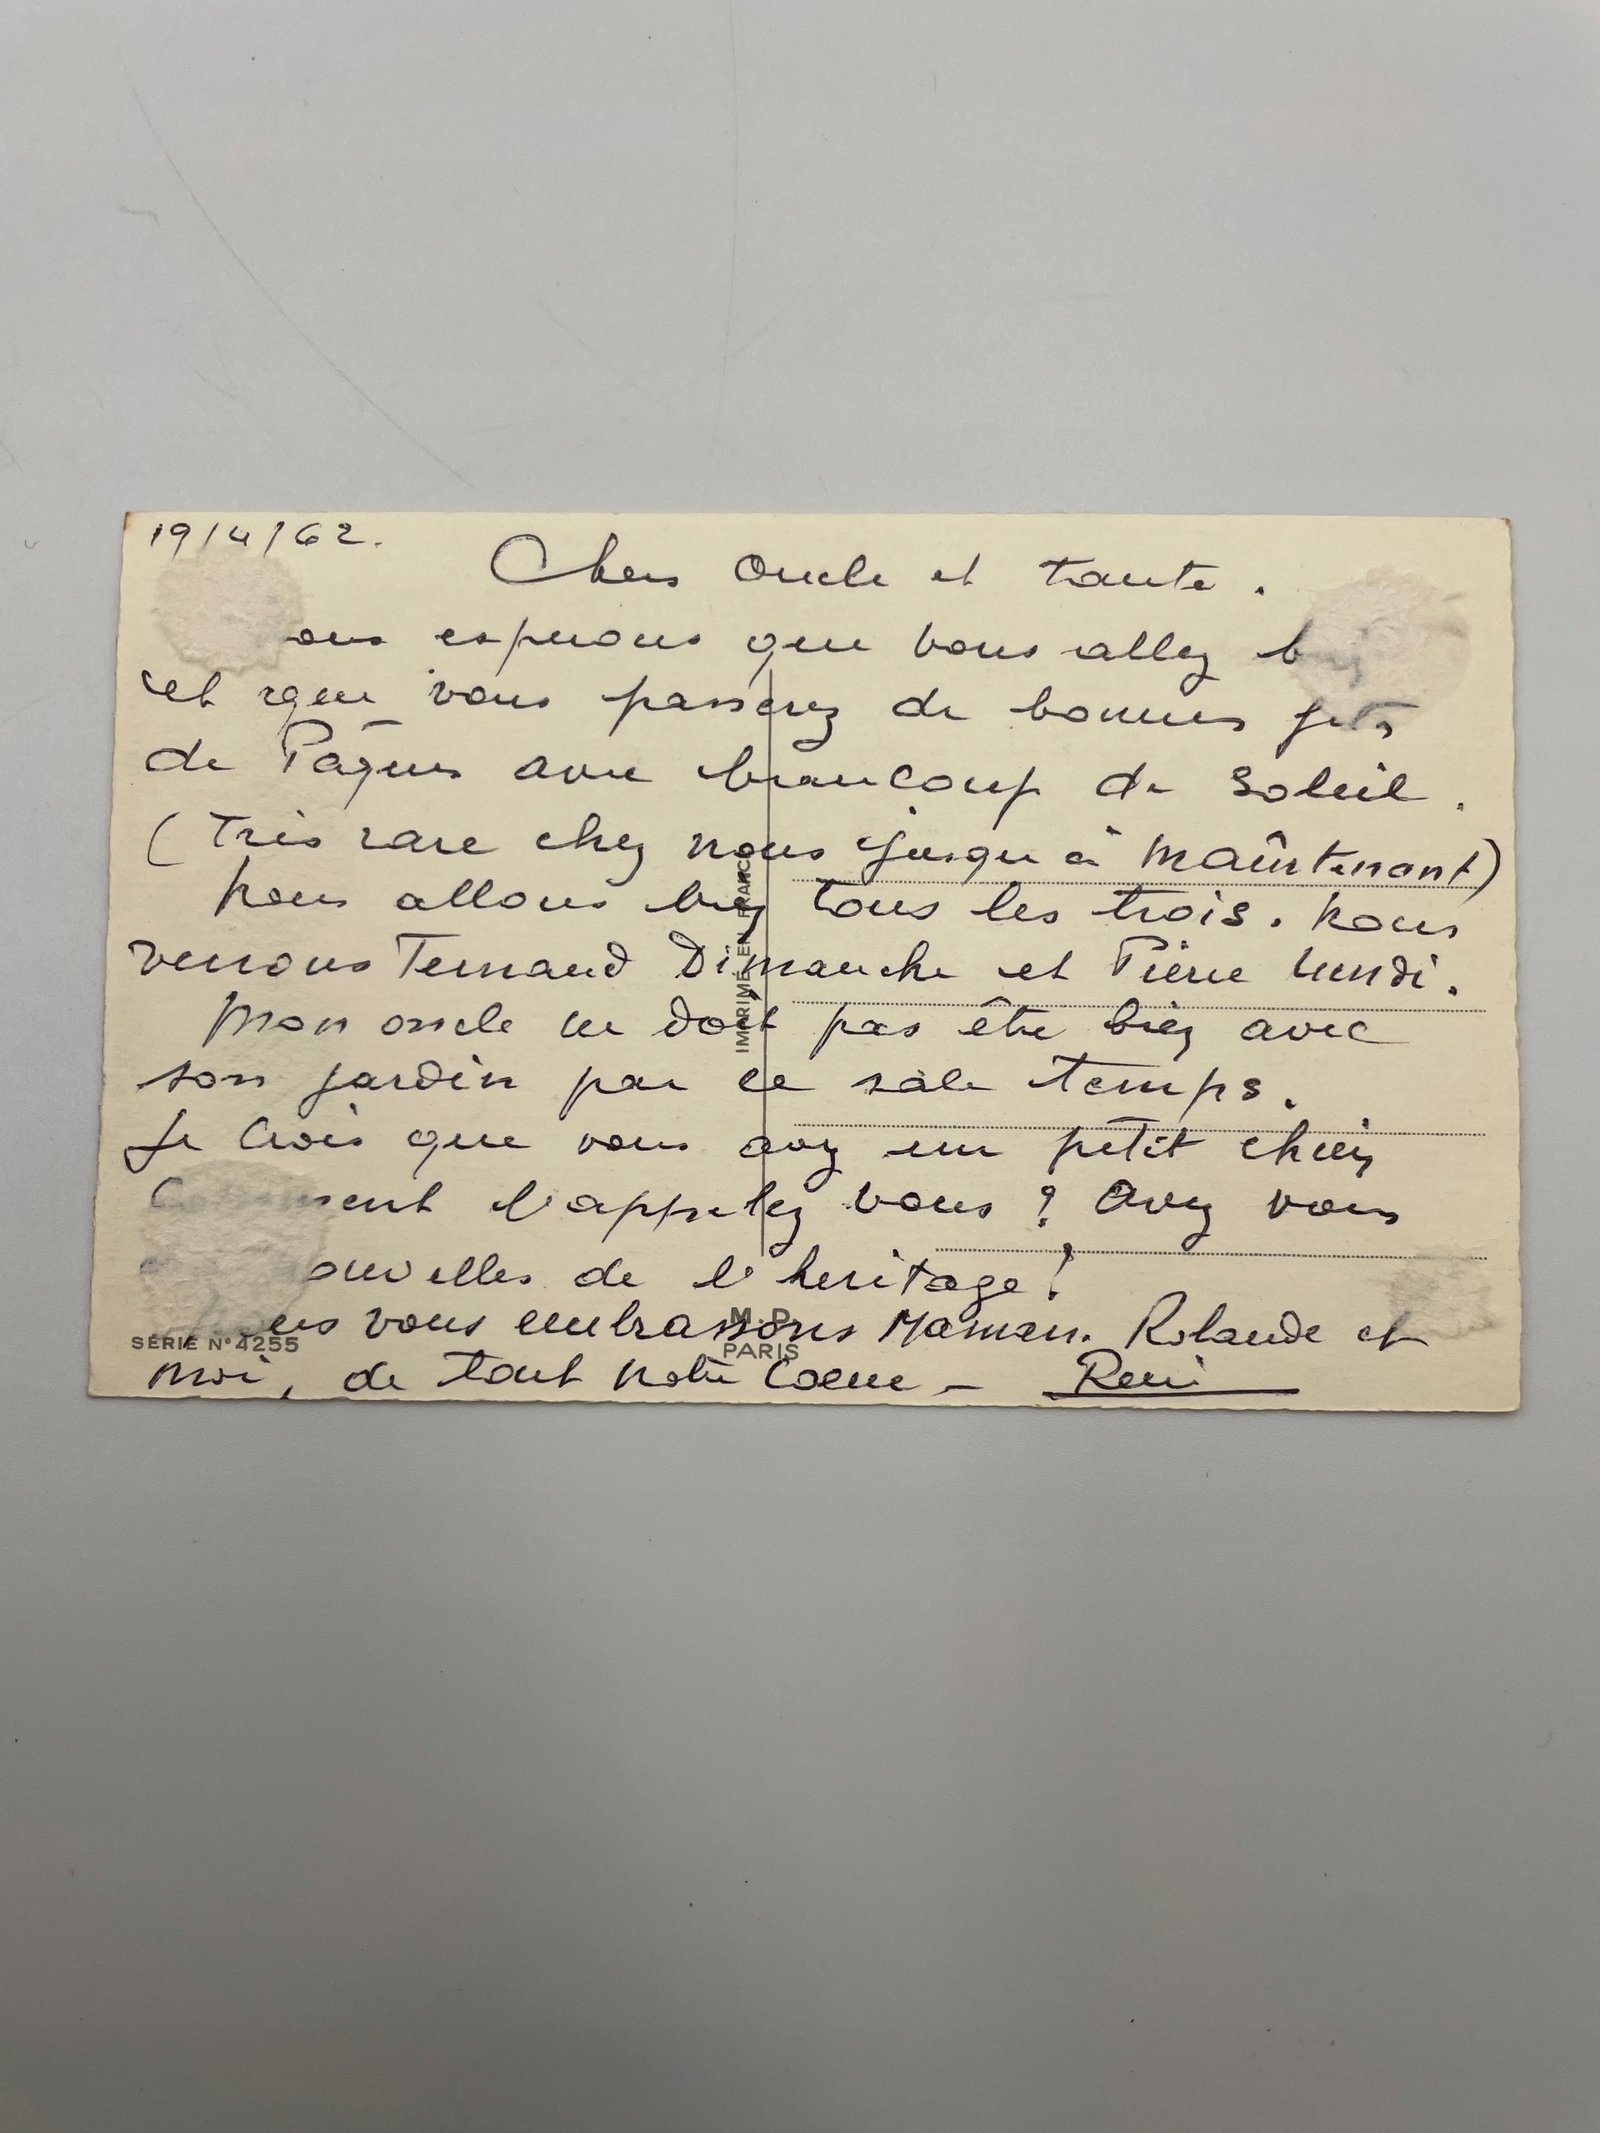 19/4/62.
Chers Oncle et tante.
ous esperons que vous allez
et que vous passerez de bonnes
de Pâques avec beaucoup de soleil.
(Très rare chez nous jusqu'à maîntenant)
Nous allons bien tous les trois. Nous
verrons Fernand Dimanche et Pierre Lundi.
Mon oncle ne doit pas être bien avec
son jardin par ce sale temps.
Je crois que vous avez un petit chien
ment l'appelez vous ? Avez vous
ouvelles de l'heritage ?
ous vous embrassons Maman. Rolande et
moi, de tout notre Coeur -
IMPRIMÉ EN FRANCE
M.D.
PARIS
SÉRIE N° 4255